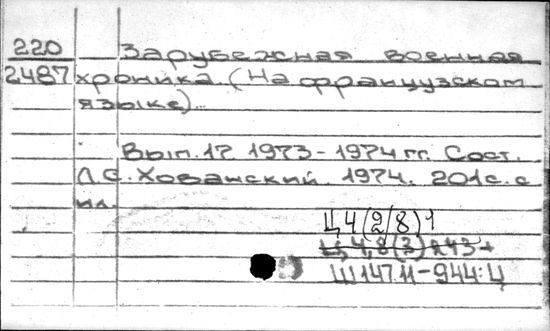 220 Зарубежная военная
2487 хроника. (На французском
языке).
Вып. 17. 1973-1974 гг. Сост.
Л.С. Хованский. 1974. 201 с. с
ил.
Ц 4 (2/8) 1
Ц 4,8 (3)
Ш 147.11-944:Ц